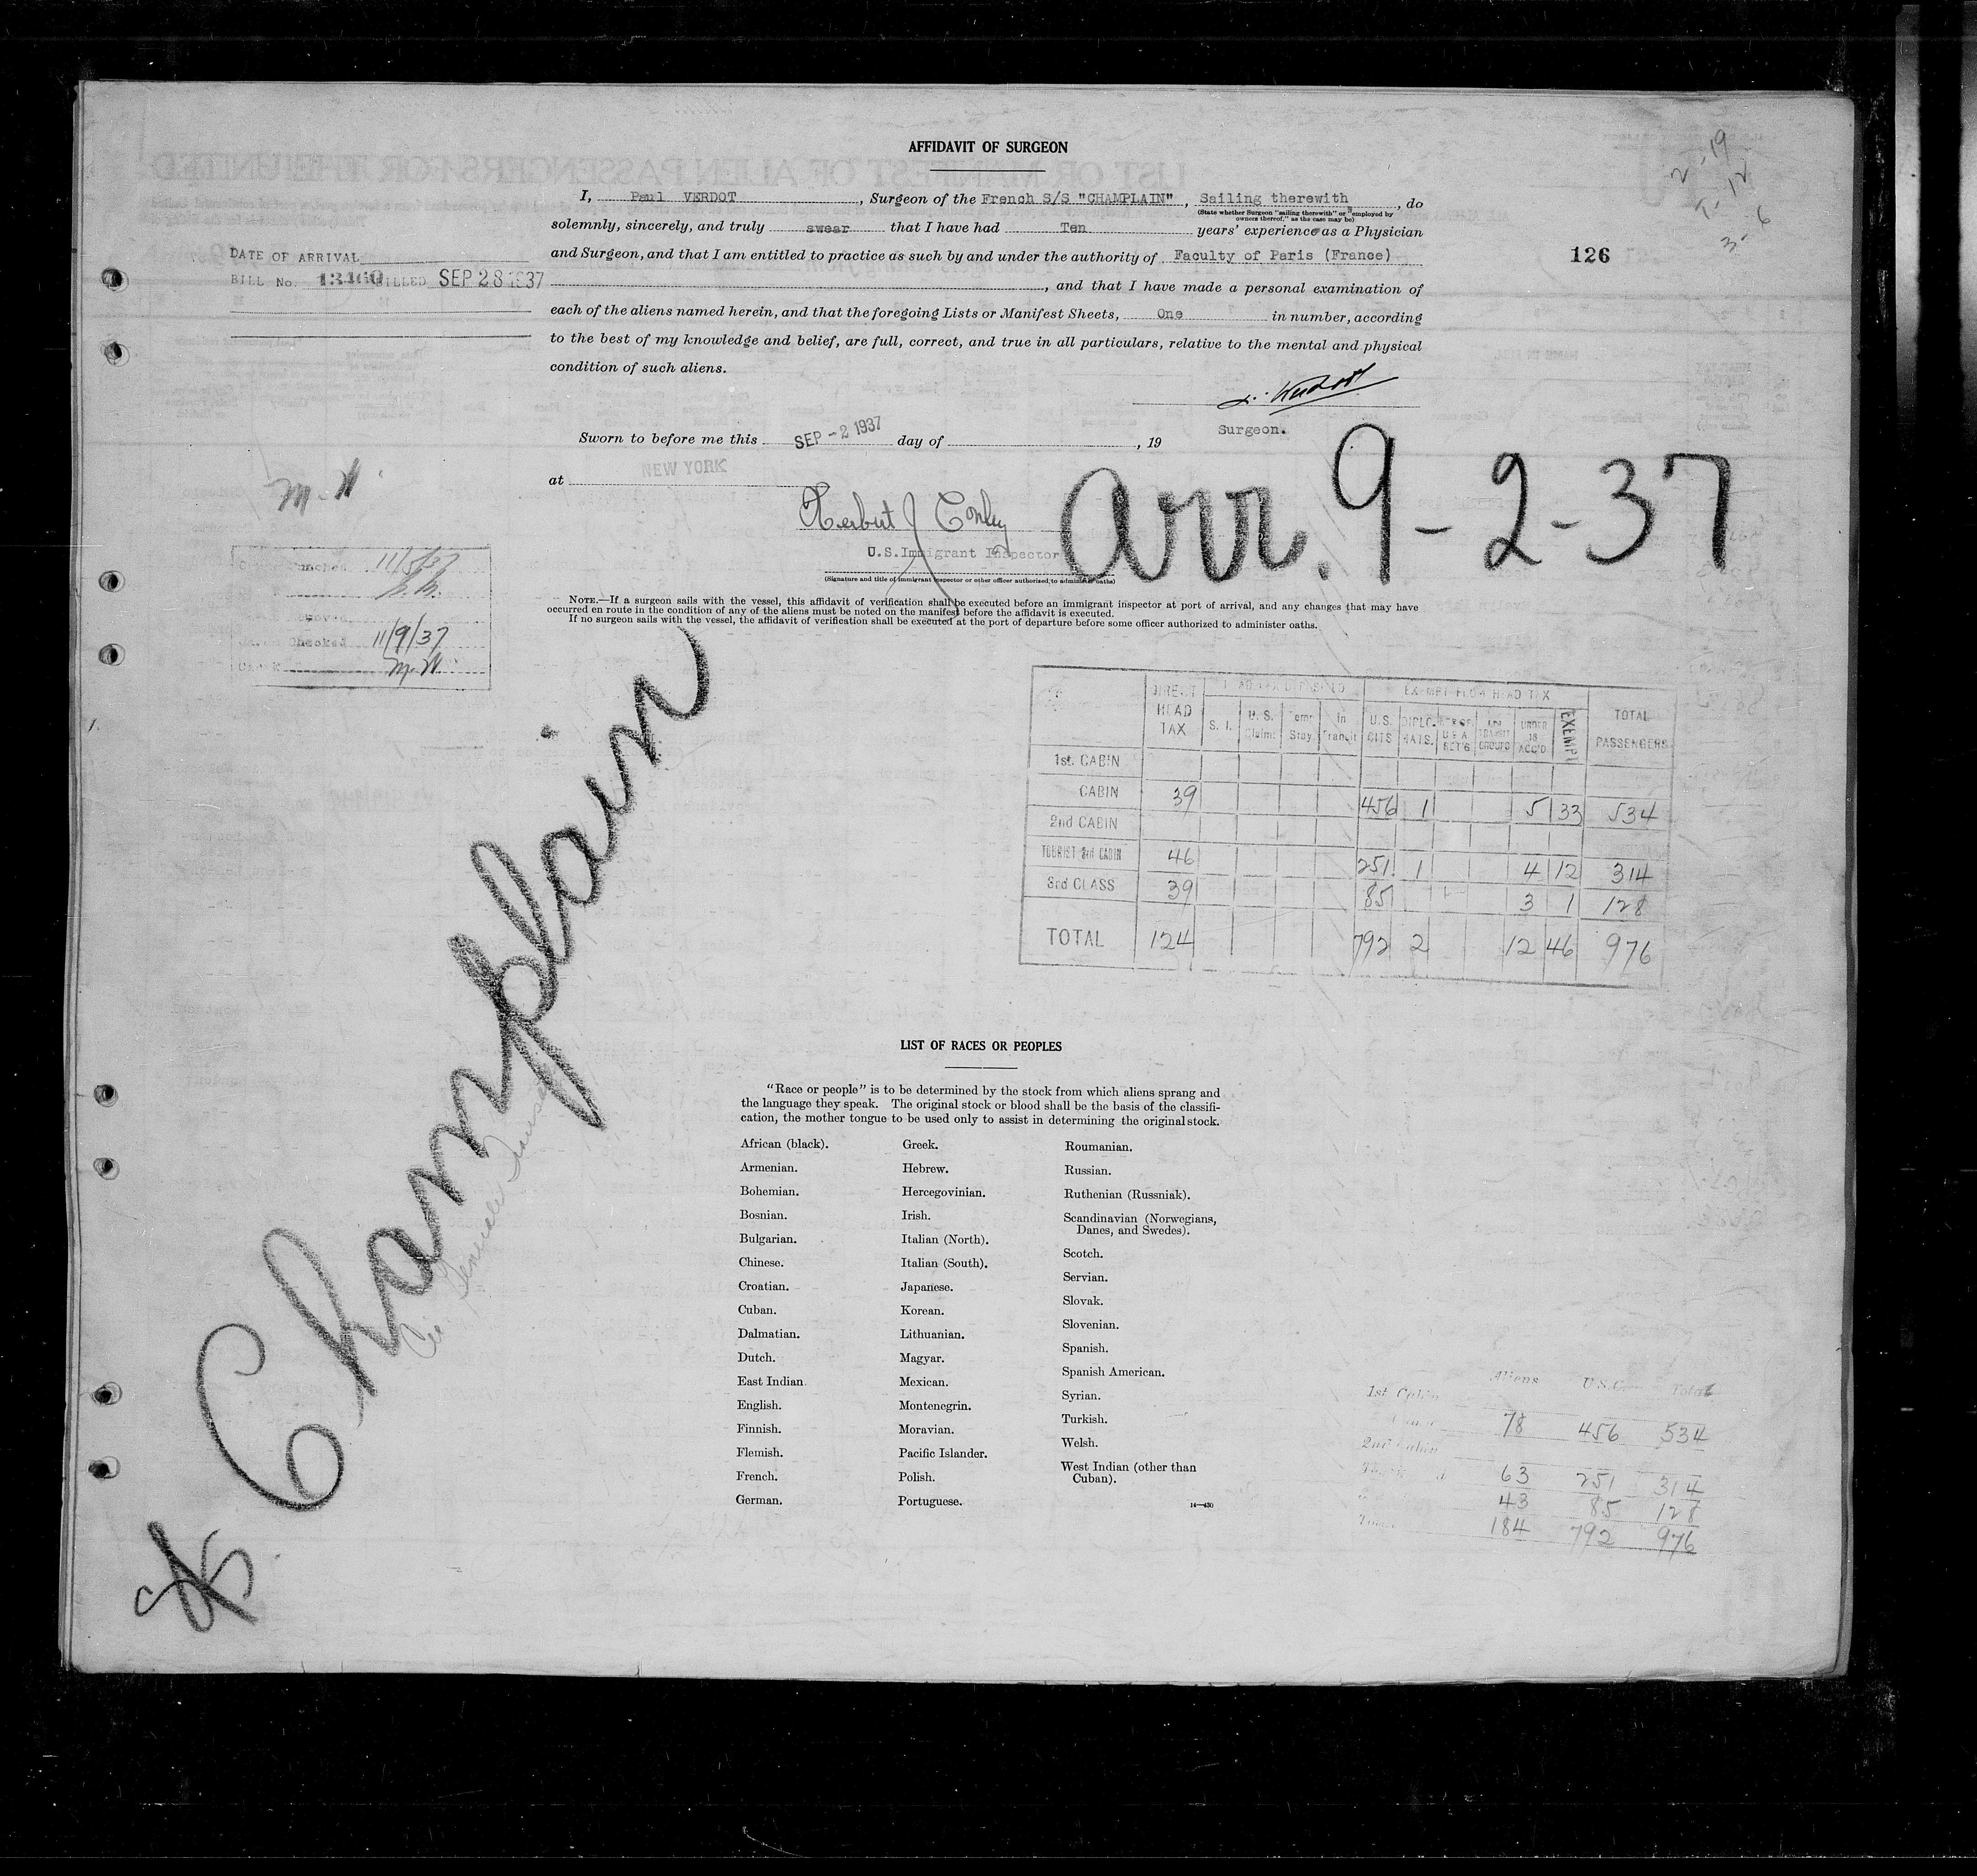 AFFIDAVIT OF SURGEON
I, Paul VERDOT, Surgeon of the French S/S "CHAMPLAIN", Sailing therewith, do
(State whether Surgeon "sailing therewith" or "employed by
owners thereof," as the case may be)
solemnly, sincerely, and truly swear that I have had Ten years' experience as a Physician
and Surgeon, and that I am entitled to practice as such by and under the authority of Faculty of Paris (France)
, and that I have made a personal examination of
each of the aliens named herein, and that the foregoing Lists or Manifest Sheets, One in number, according
to the best of my knowledge and belief, are full, correct, and true in all particulars, relative to the mental and physical
condition of such aliens.
DATE OF ARRIVAL
BILL No. 13460 BILLED SEP 28 1937
126
2-19
12
3-6
Surgeon.
Sworn to before me this SEP -2 1937 day of , 19
at NEW YORK
Herbert J Conley
U.S. Immigrant Inspector
(Signature and title of immigrant inspector or other officer authorized to administer oaths)
arr. 9-2-37
M.W.
Punched 11/5/37
Checked 11/9/37
M.W.
NOTE.—If a surgeon sails with the vessel, this affidavit of verification shall be executed before an immigrant inspector at port of arrival, and any changes that may have
occurred en route in the condition of any of the aliens must be noted on the manifest before the affidavit is executed.
If no surgeon sails with the vessel, the affidavit of verification shall be executed at the port of departure before some officer authorized to administer oaths.
SS. Champlain
DIRECT HEAD TAX
HEAD TAX DEPOSITED
S. I.
U. S. Claims
Temp Stay
In Transit
EXEMPT FROM HEAD TAX
U.S. CITS
DIPLOMATS.
UNDER 16 ACC'D
EXEMPT
TOTAL PASSENGERS
1st. CABIN
CABIN 39 456 1 5 33 534
2nd CABIN
TOURIST 3rd CABIN 46 251 1 4 12 314
3rd CLASS 39 85 3 1 128
TOTAL 124 792 2 12 46 976
LIST OF RACES OR PEOPLES
"Race or people" is to be determined by the stock from which aliens sprang and
the language they speak. The original stock or blood shall be the basis of the classifi-
cation, the mother tongue to be used only to assist in determining the original stock.
African (black).
Armenian.
Bohemian.
Bosnian.
Bulgarian.
Chinese.
Croatian.
Cuban.
Dalmatian.
Dutch.
East Indian.
English.
Finnish.
Flemish.
French.
German.
Greek.
Hebrew.
Hercegovinian.
Irish.
Italian (North).
Italian (South).
Japanese.
Korean.
Lithuanian.
Magyar.
Mexican.
Montenegrin.
Moravian.
Pacific Islander.
Polish.
Portuguese.
Roumanian.
Russian.
Ruthenian (Russniak).
Scandinavian (Norwegians,
Danes, and Swedes).
Scotch.
Servian.
Slovak.
Slovenian.
Spanish.
Spanish American.
Syrian.
Turkish.
Welsh.
West Indian (other than
Cuban).
14—430
Aliens Total
1st Cabin
78 456 534
2nd Cabin
63 251 314
43 85 128
184 792 976